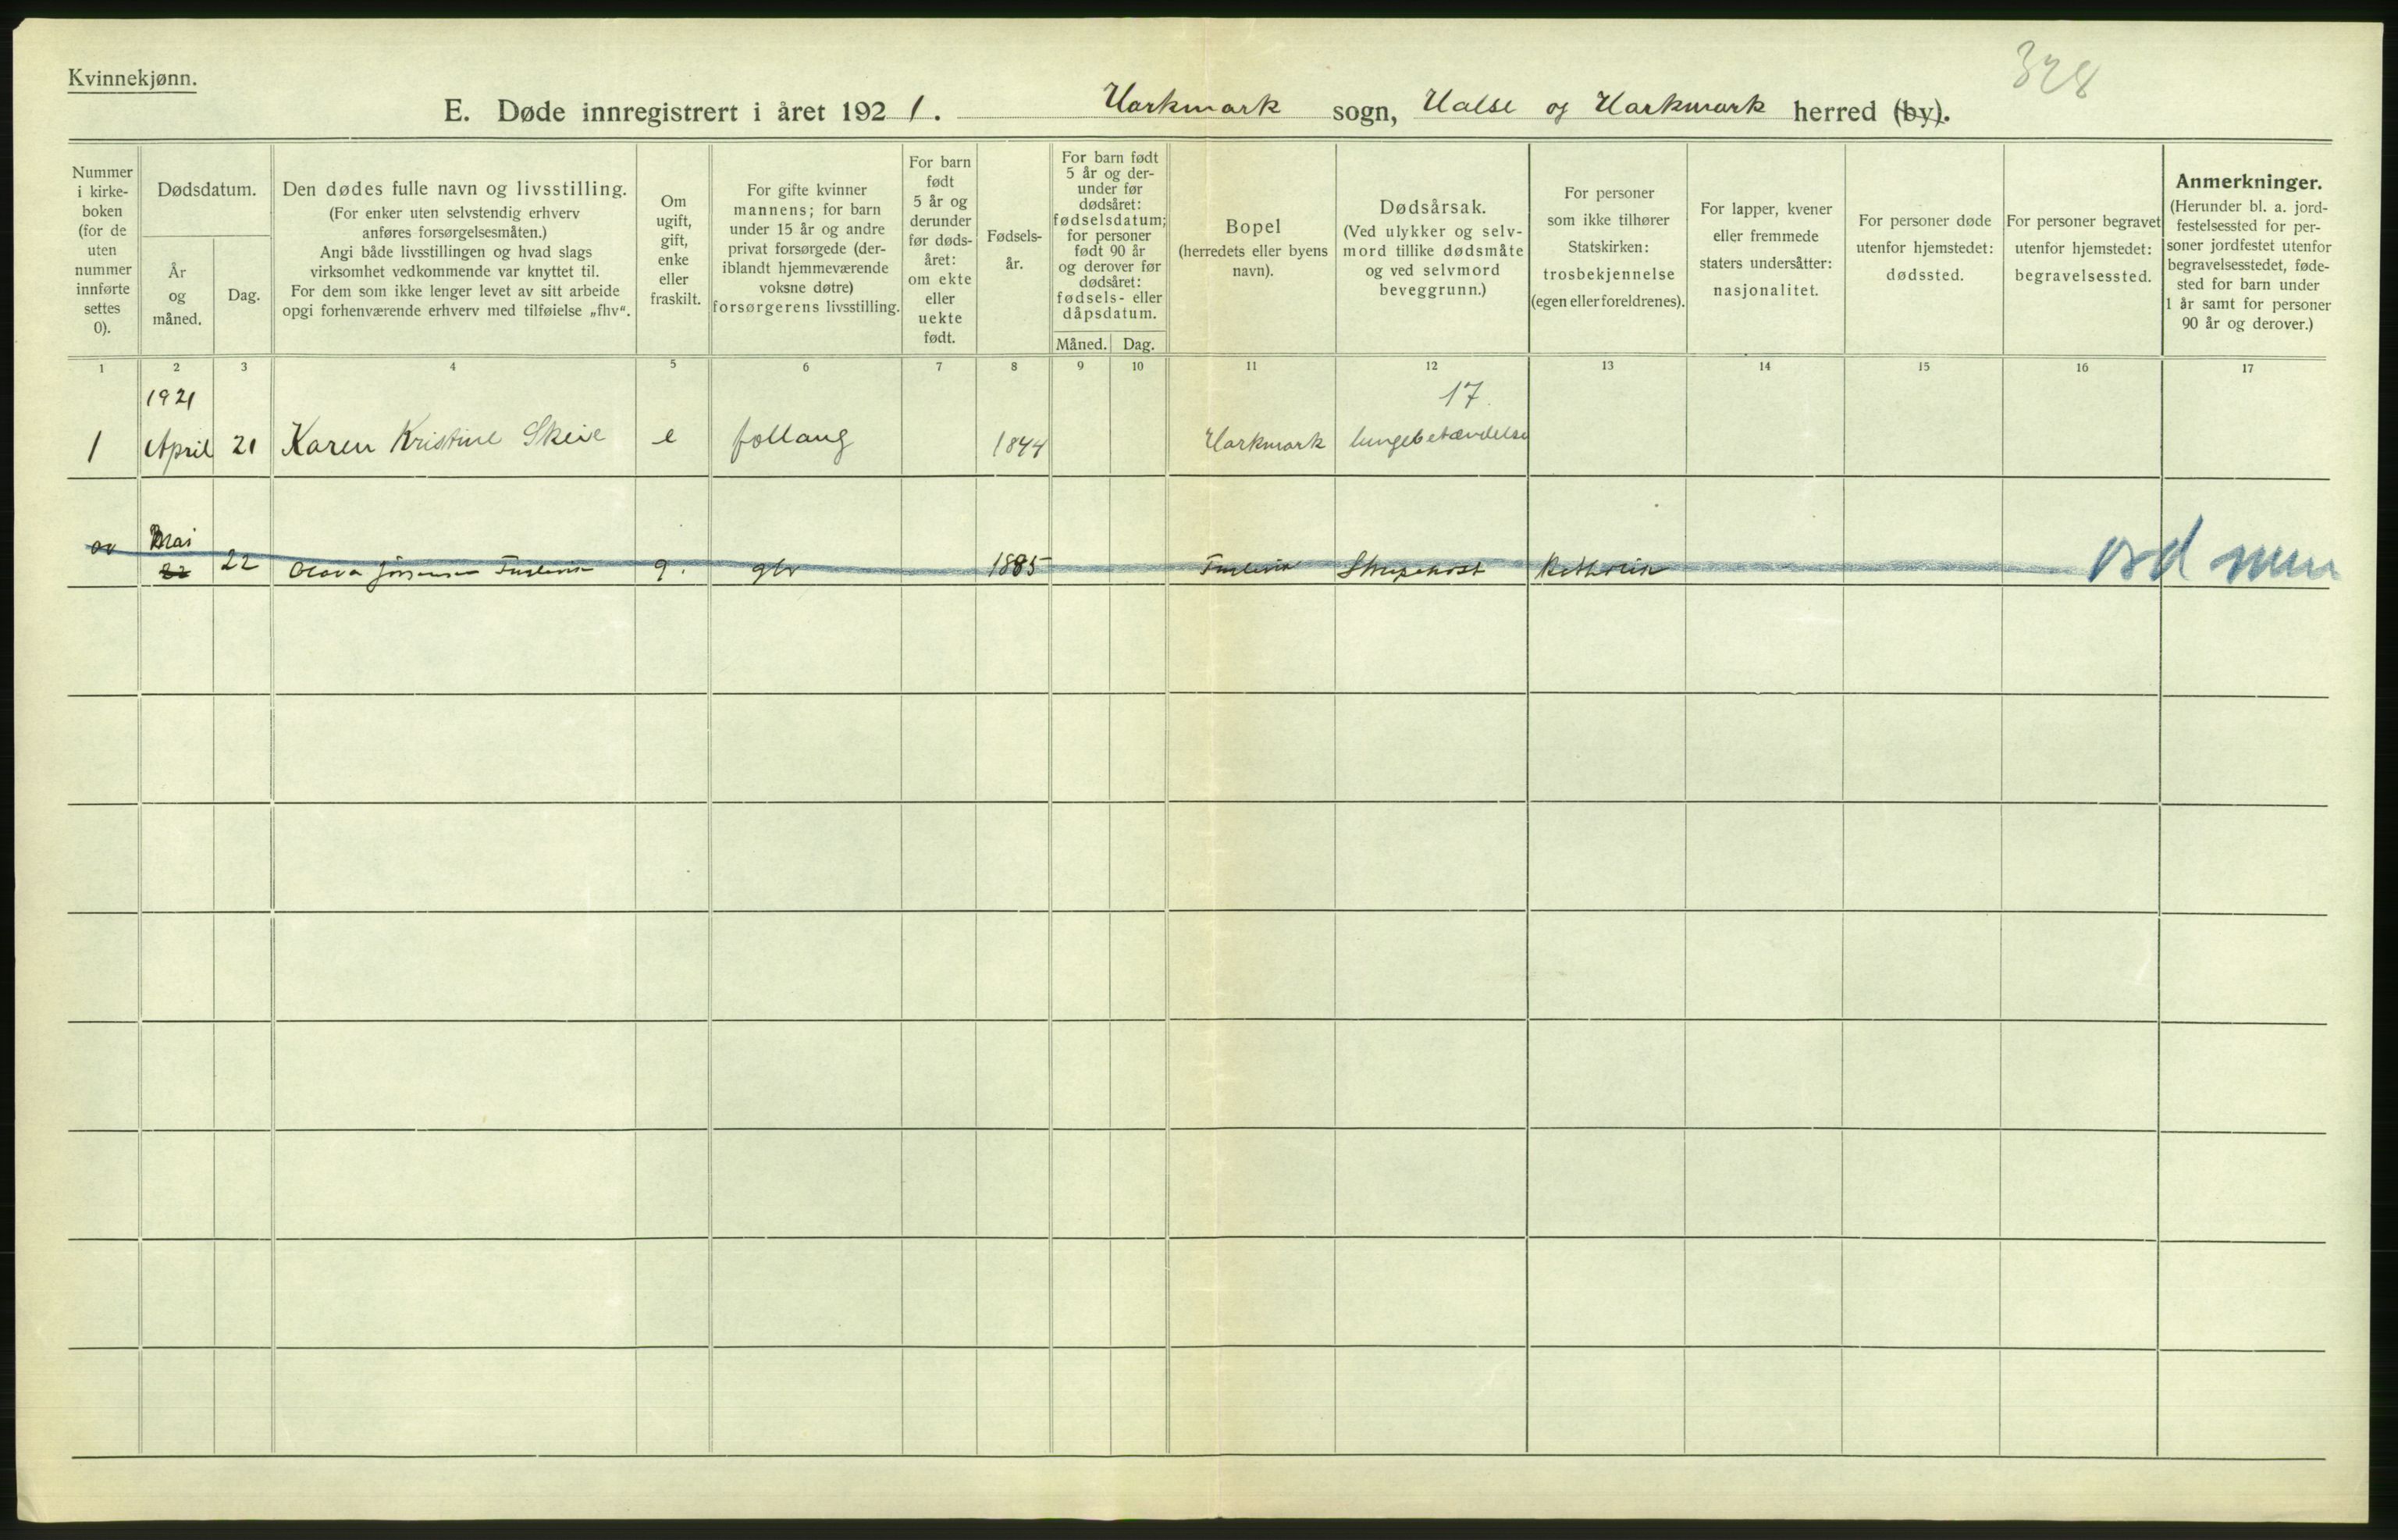 Kvinnekjønn.
328
E. Døde innregistrert i året 1921. Harkmark sogn, Halse og Harkmark herred (by).
Nummer i kirke- boken (for de uten nummer innførte settes 0).
Dødsdatum.
År og måned.
Dag.
Den dødes fulle navn og livsstilling.
(For enker uten selvstendig erhverv
anføres forsørgelsesmåten.)
Angi både livsstillingen og hvad slags
virksomhet vedkommende var knyttet til.
For dem som ikke lenger levet av sitt arbeide
opgi forhenværende erhverv med tilføielse „fhv“.
Om
ugift,
gift,
enke
eller
fraskilt.
For gifte kvinner
mannens; for barn
under 15 år og andre
privat forsørgede (der-
iblandt hjemmeværende
voksne døtre)
forsørgerens livsstilling.
For barn
født
5 år og
derunder
før døds-
året:
om ekte
eller
uekte
født.
Fødsels-
år.
For barn født
5 år og der-
under før
dødsåret:
fødselsdatum;
for personer
født 90 år
og derover før
dødsåret:
fødsels- eller
dåpsdatum.
Måned. Dag.
Bopel
(herredets eller byens
navn).
Dødsårsak.
(Ved ulykker og selv-
mord tillike dødsmåte
og ved selvmord
beveggrunn.)
For personer
som ikke tilhører
Statskirken:
trosbekjennelse
(egen eller foreldrenes).
For lapper, kvener
eller fremmede
staters undersåtter:
nasjonalitet.
For personer døde
utenfor hjemstedet:
dødssted.
For personer begravet
utenfor hjemstedet:
begravelsessted.
Anmerkninger.
(Herunder bl. a. jord-
festelsessted for per-
soner jordfestet utenfor
begravelsesstedet, føde-
sted for barn under
1 år samt for personer
90 år og derover.)
1 2 3 4 5 6 7 8 9 10 11 12 13 14 15 16 17
1921 17.
1 April 21 Karen Kristine Skeie e follaug 1844 Harkmark lungebetændelse
Mai
22 22 Olava g. gbr 1885 Strupehost